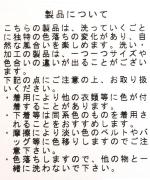 製品について
こちらの製品は、洗っていくごとに
独特な色落ちの変化があり、自
然な風合いを楽しめます。洗いや
加工の製品は、一点一点サイズや
色合いの違いが出ることがござい
ます。
下記の点にご注意の上、お取り扱
いください。
・着用により他の衣類等に色が付
着することがあります。
・着用等は同系色のものを着用さ
れることをおすすめします。
・摩擦により淡い色のベルトやバ
ッグ等を色移りしますのでご注
意下さい。
・色落ちしますので、他の物と一
緒に洗わないで下さい。